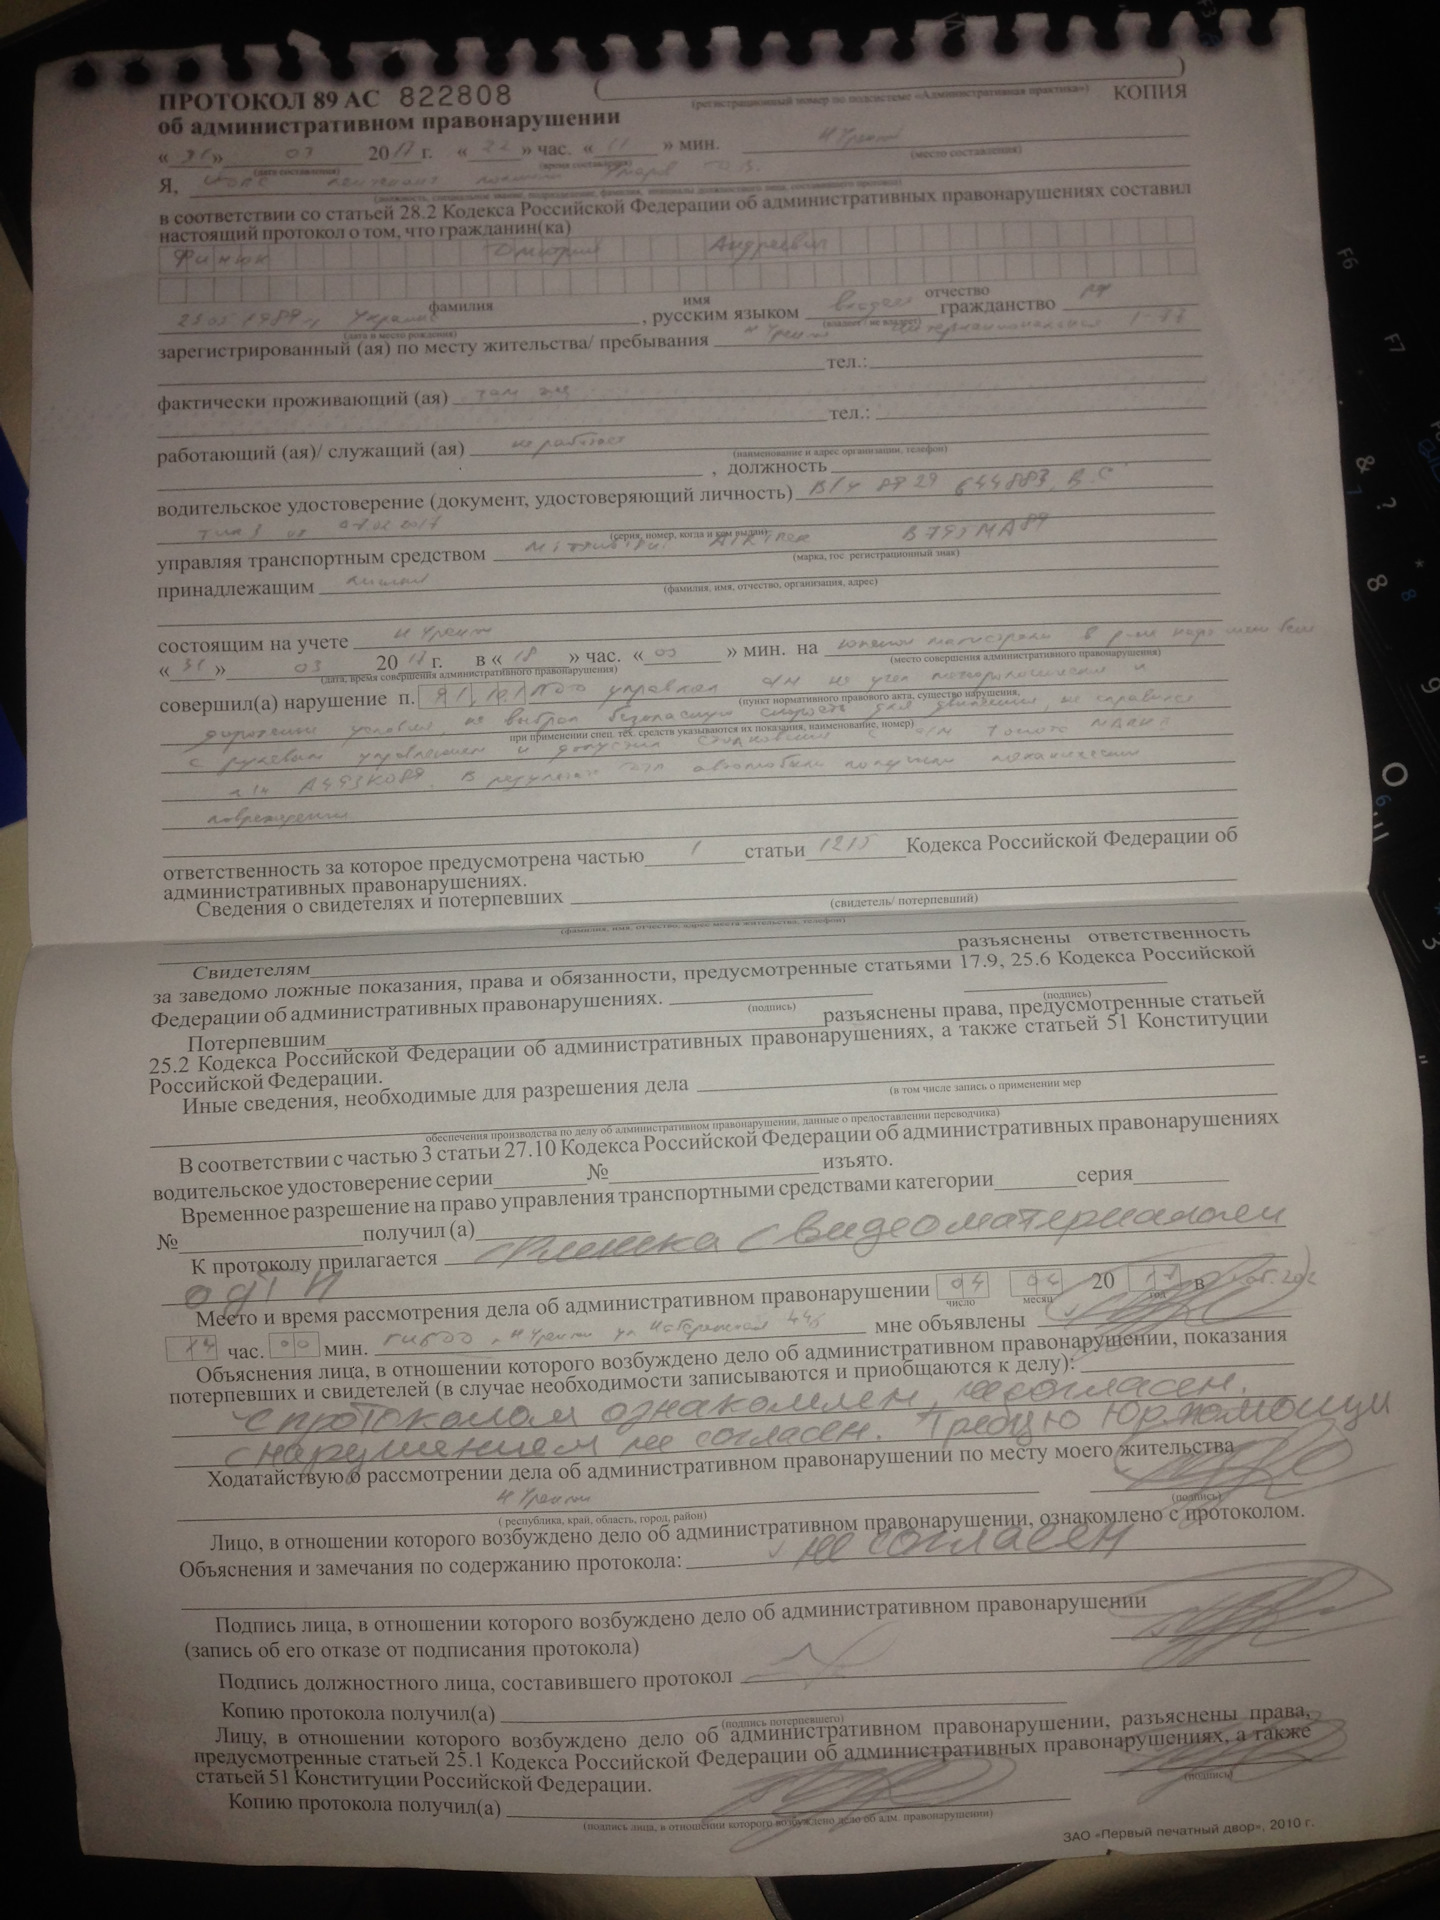 ПРОТОКОЛ 89 АС 822808
(регистрационный номер по подсистеме «Административная практика») КОПИЯ
об административном правонарушении
« 31 » 03 2017 г. « 22 » час. « 11 » мин. Н Уренгой
(дата составления) (время составления) (место составления)
Я,
(должность, специальное звание, подразделение, фамилия, инициалы должностного лица, составившего протокол)
в соответствии со статьей 28.2 Кодекса Российской Федерации об административных правонарушениях составил
настоящий протокол о том, что гражданин(ка)
Финюк Дмитрий Андреевич
фамилия имя отчество
1989 г. , русским языком владеет гражданство РФ
(дата и место рождения) (владеет / не владеет)
зарегистрированный (ая) по месту жительства/ пребывания Н Уренгой
тел.:
фактически проживающий (ая) там же
тел.:
работающий (ая)/ служащий (ая) не работает
(наименование и адрес организации, телефон)
, должность
водительское удостоверение (документ, удостоверяющий личность) В/у 8929 644883
(серия, номер, когда и кем выдан)
управляя транспортным средством В795МА89
(марка, гос. регистрационный знак)
принадлежащим
(фамилия, имя, отчество, организация, адрес)
состоящим на учете Н Уренгой
« 31 » 03 2017 г. в « 18 » час. « » мин. на
(дата, время совершения административного правонарушения) (место совершения административного правонарушения)
совершил(а) нарушение п. ПДД управлял а/м не учел метеорологические и
(пункт нормативного правового акта, существо нарушения,
дорожные условия, не выбрал безопасную скорость для движения, не справился
при применении спец. тех. средств указываются их показания, наименование, номер)
с рулевым управлением и допустил столкновение с а/м
В результате ДТП автомобили получили механические
повреждения.
ответственность за которое предусмотрена частью 1 статьи 12.15 Кодекса Российской Федерации об
административных правонарушениях.
Сведения о свидетелях и потерпевших
(свидетель/ потерпевший)
(фамилия, имя, отчество, адрес места жительства, телефон)
Свидетелям разъяснены ответственность
за заведомо ложные показания, права и обязанности, предусмотренные статьями 17.9, 25.6 Кодекса Российской
Федерации об административных правонарушениях.
(подпись) (подпись)
Потерпевшим разъяснены права, предусмотренные статьей
25.2 Кодекса Российской Федерации об административных правонарушениях, а также статьей 51 Конституции
Российской Федерации.
Иные сведения, необходимые для разрешения дела
(в том числе запись о применении мер
обеспечения производства по делу об административном правонарушении, данные о предоставлении переводчика)
В соответствии с частью 3 статьи 27.10 Кодекса Российской Федерации об административных правонарушениях
водительское удостоверение серии № изъято.
Временное разрешение на право управления транспортными средствами категории серия
№ получил (а)
К протоколу прилагается флешка с видеоматериалом
Место и время рассмотрения дела об административном правонарушении 04 04 20 17 в
число месяц год
14 час. 00 мин. ГИБДД г. Н Уренгой мне объявлены
Объяснения лица, в отношении которого возбуждено дело об административном правонарушении, показания
потерпевших и свидетелей (в случае необходимости записываются и приобщаются к делу):
с протоколом ознакомлен, не согласен.
с нарушением не согласен. Требую юр.помощи
Ходатайствую о рассмотрении дела об административном правонарушении по месту моего жительства
Н Уренгой
( республика, край, область, город, район) (подпись)
Лицо, в отношении которого возбуждено дело об административном правонарушении, ознакомлено с протоколом.
Объяснения и замечания по содержанию протокола: не согласен
Подпись лица, в отношении которого возбуждено дело об административном правонарушении
(запись об его отказе от подписания протокола)
Подпись должностного лица, составившего протокол
Копию протокола получил(а)
(подпись потерпевшего)
Лицу, в отношении которого возбуждено дело об административном правонарушении, разъяснены права,
предусмотренные статьей 25.1 Кодекса Российской Федерации об административных правонарушениях, а также
статьей 51 Конституции Российской Федерации.
(подпись)
Копию протокола получил(а)
(подпись лица, в отношении которого возбуждено дело об адм. правонарушении)
ЗАО «Первый печатный двор», 2010 г.